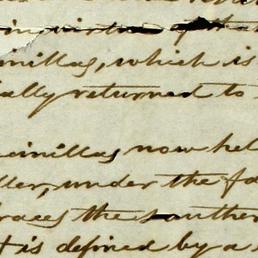 in virtue of tha
inillas, which is
ally returned to
inillas now hel
ller, under the fo
braces the southern
t is defined by a